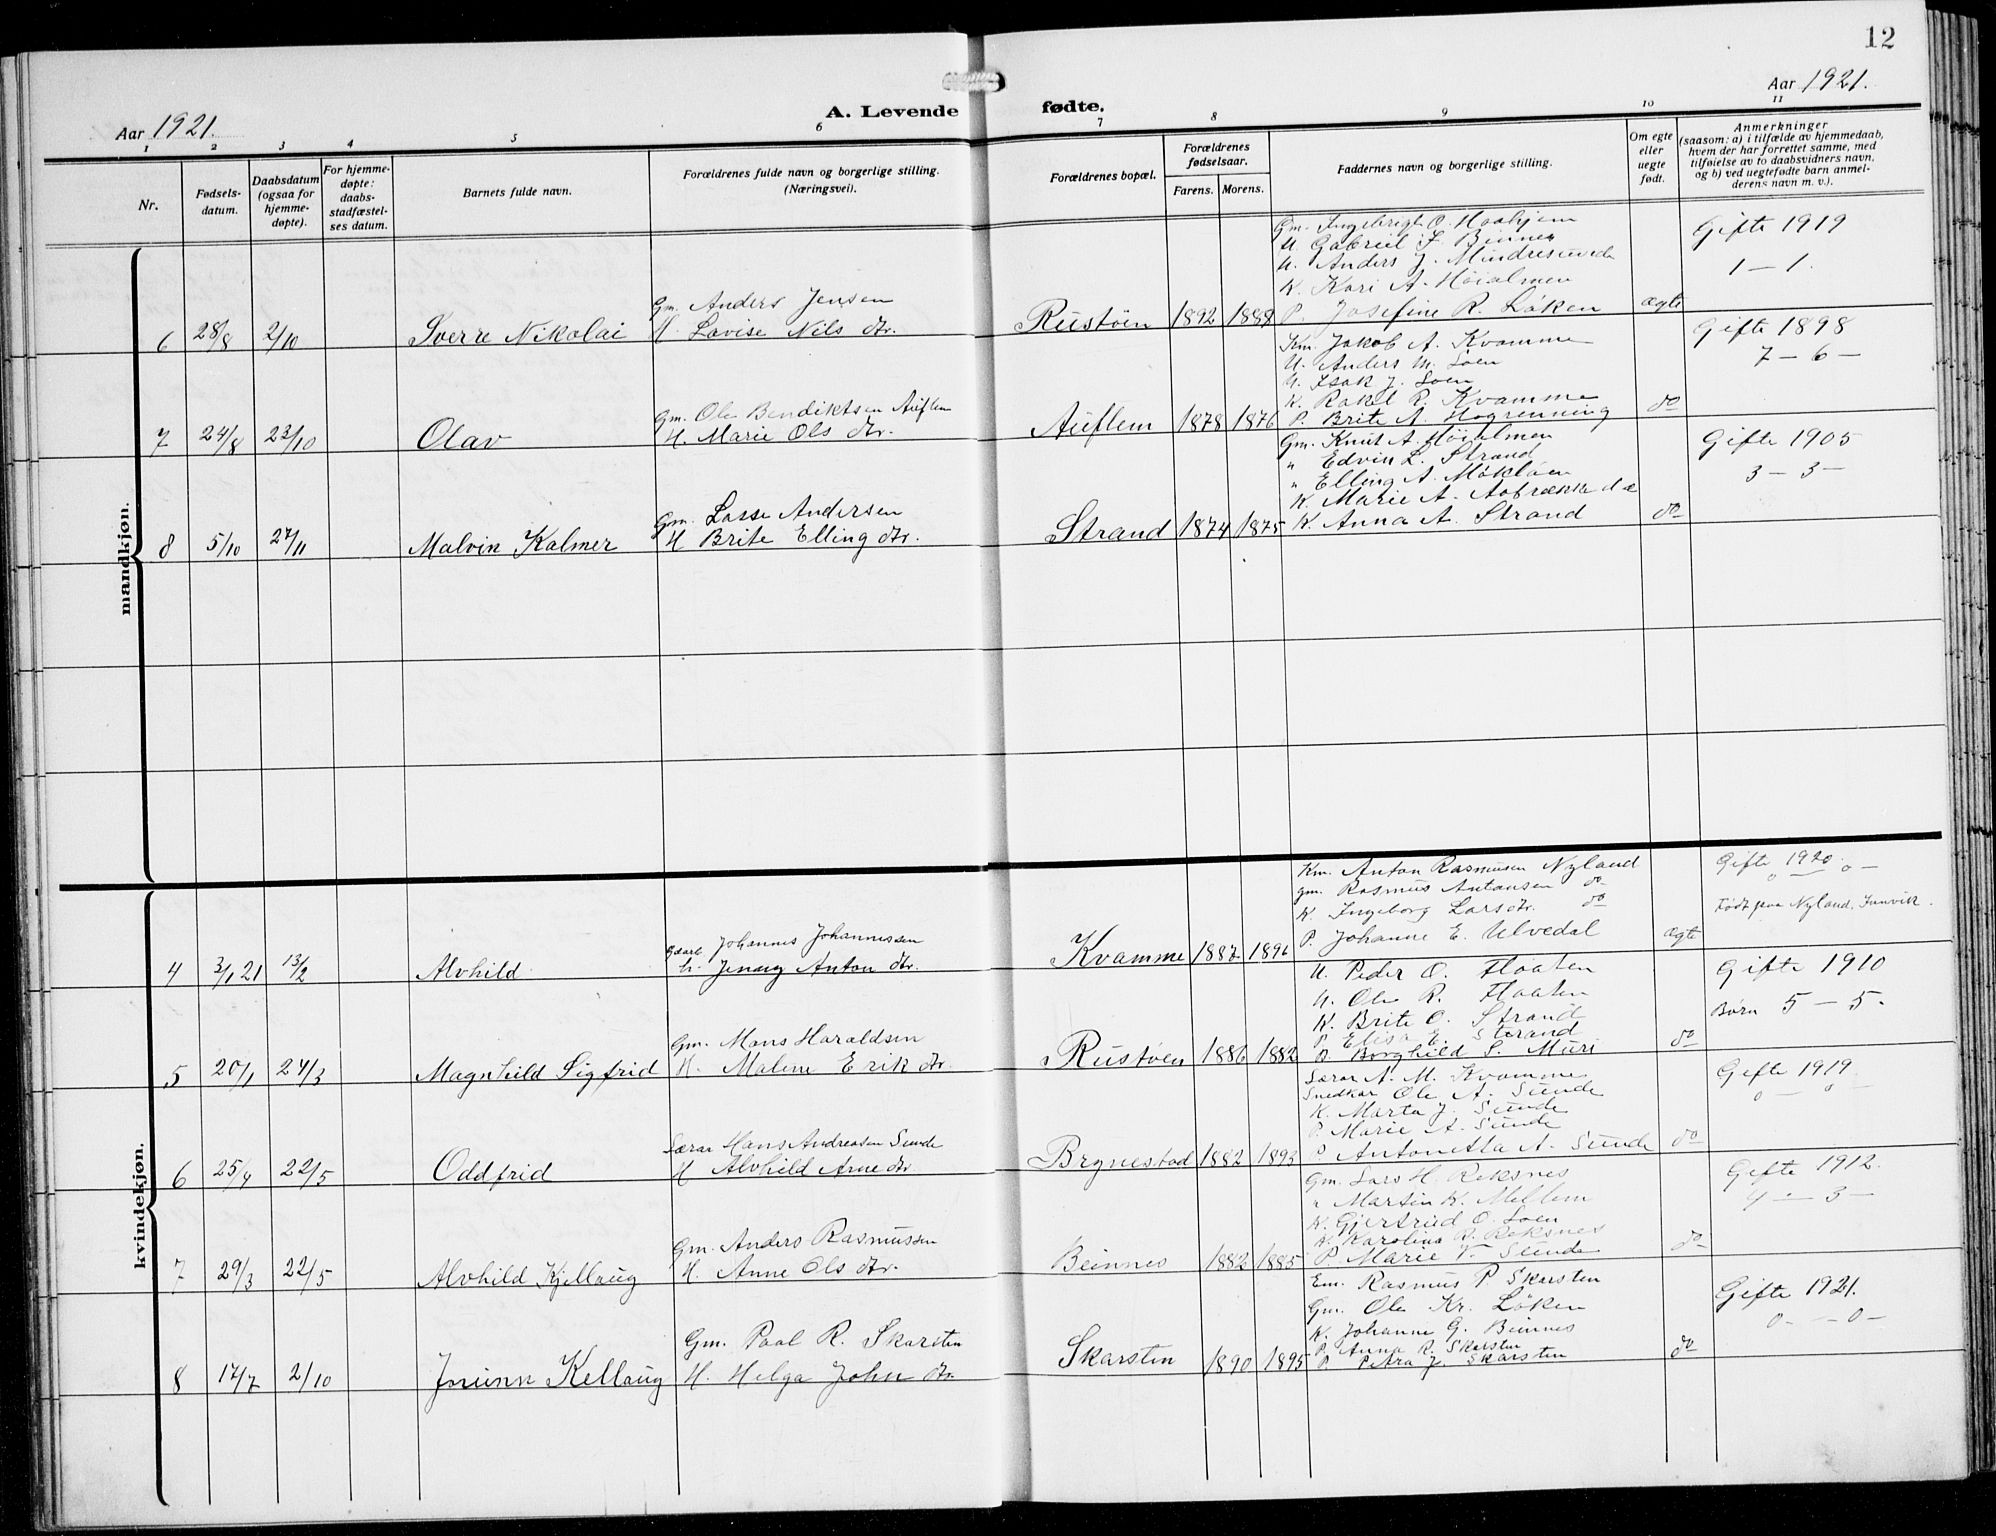 12
Aar 1921.
A. Levende fødte.
Aar 1921.
1 2 3 4 5 6 7 8 9 10 11
Nr.
Fødsels-
datum.
Daabsdatum
(ogsaa for
hjemme-
døpte).
For hjemme-
døpte:
daabs-
stadfæstel-
ses datum.
Barnets fulde navn.
Forældrenes fulde navn og borgerlige stilling.
(Næringsvei).
Forældrenes bopæl.
Forældrenes
fødselsaar.
Farens. Morens.
Faddernes navn og borgerlige stilling.
Om egte
eller
uegte
født.
Anmerkninger
(saasom: a) i tilfælde av hjemmedaab,
hvem der har forrettet samme, med
tilføielse av to daabsvidners navn,
og b) ved uegtefødte barn anmel-
derens navn m. v.).
mandkjøn.
6 28/8 2/10 Sverre Nikolai
Gm. Anders Jensen
H. Lovise Nils dtr.
Rustøen 1892 1889
Gm. Ingebrigt O. Haahjem
U. Gabriel F. Beinnes
U. Anders J. Mindresunde
K. Kari A. Høialmen
P. Josefine R. Løken
ægte
Gifte 1919
1 — 1.
7 24/8 23/10 Olav
Gm. Ole Bendiktsen Auflem
H. Marie Ols dtr.
Auflem 1878 1876
Km. Jakob A. Kvamme
U. Anders M. Loen
U. Isak J. Loen
K. Rakel R. Kvamme
P. Brite A. Hogrenning
do
Gifte 1898
7 — 6 —
8 5/10 27/11 Malvin Kalmer
Gm. Lasse Andersen
H Brite Elling dtr.
Strand 1874 1875
Gm. Knut A. Høialmen
" Edvin L. Strand
" Elling A. Mökløen
K. Marie A. Aabrække d æ
K. Anna A. Strand
do
Gifte 1905
3 — 3 —
kvindekjøn.
4 3/1 21 13/2 Alvhild
Johannes Johannessen
h. Jenny Anton dtr.
Kvamme 1887 1896
Km. Anton Rasmusen Nyland
gm. Rasmus Antonsen do
K. Ingeborg Larsdtr. do
P. Johanne E. Ulvedal
ægte
Gifte 1920.
0 — 0 —
Født paa Nyland, Innvik.
5 20/1 24/3 Magnhild Sigfrid
Gm. Mons Haraldsen
H. Malene Erik dtr.
Rustøen 1886 1882
U. Peder O. Flaaten
U. Ole R. Flaaten
K. Brite O. Strand
P Elisa E. Strand
P. Borghild S. Muri
do
Gifte 1910
Børn 5 — 5 -
6 25/4 22/5 Oddfrid
Lærar Hans Andreasen Sunde
H Alvhild Arne dtr
Brynestad 1882 1893
Lærar A. M. Kvamme
Snedkar Ole A. Sunde
K. Marta J. Sunde
P. Marie A. Sunde
P Antonetta A. Sunde
do
Gifte 1919
0 — 0
7 29/3 22/5 Alvhild Kjellaug
Gm. Anders Rasmussen
H. Anne Ols dtr.
Beinnes 1882 1885
Gm. Lars H. Reksnes
" Martin K. Mellem
K. Gjertrud O. Loen
K. Karolina R. Reksnes
P. Marie V. Sunde
do
Gifte 1912.
4 — 3 —
8 17/7 2/10 Jorunn Kellaug
Gm. Paal R. Skarsten
H. Helga John dtr.
Skarsten 1890 1895
Em. Rasmus P. Skarsten
Gm. Ole Kr. Løken
K. Johanne G. Beinnes
P. Anna R. Skarsten
P Petra J. Skarsten
do
Gifte 1921.
0 - - 0 -